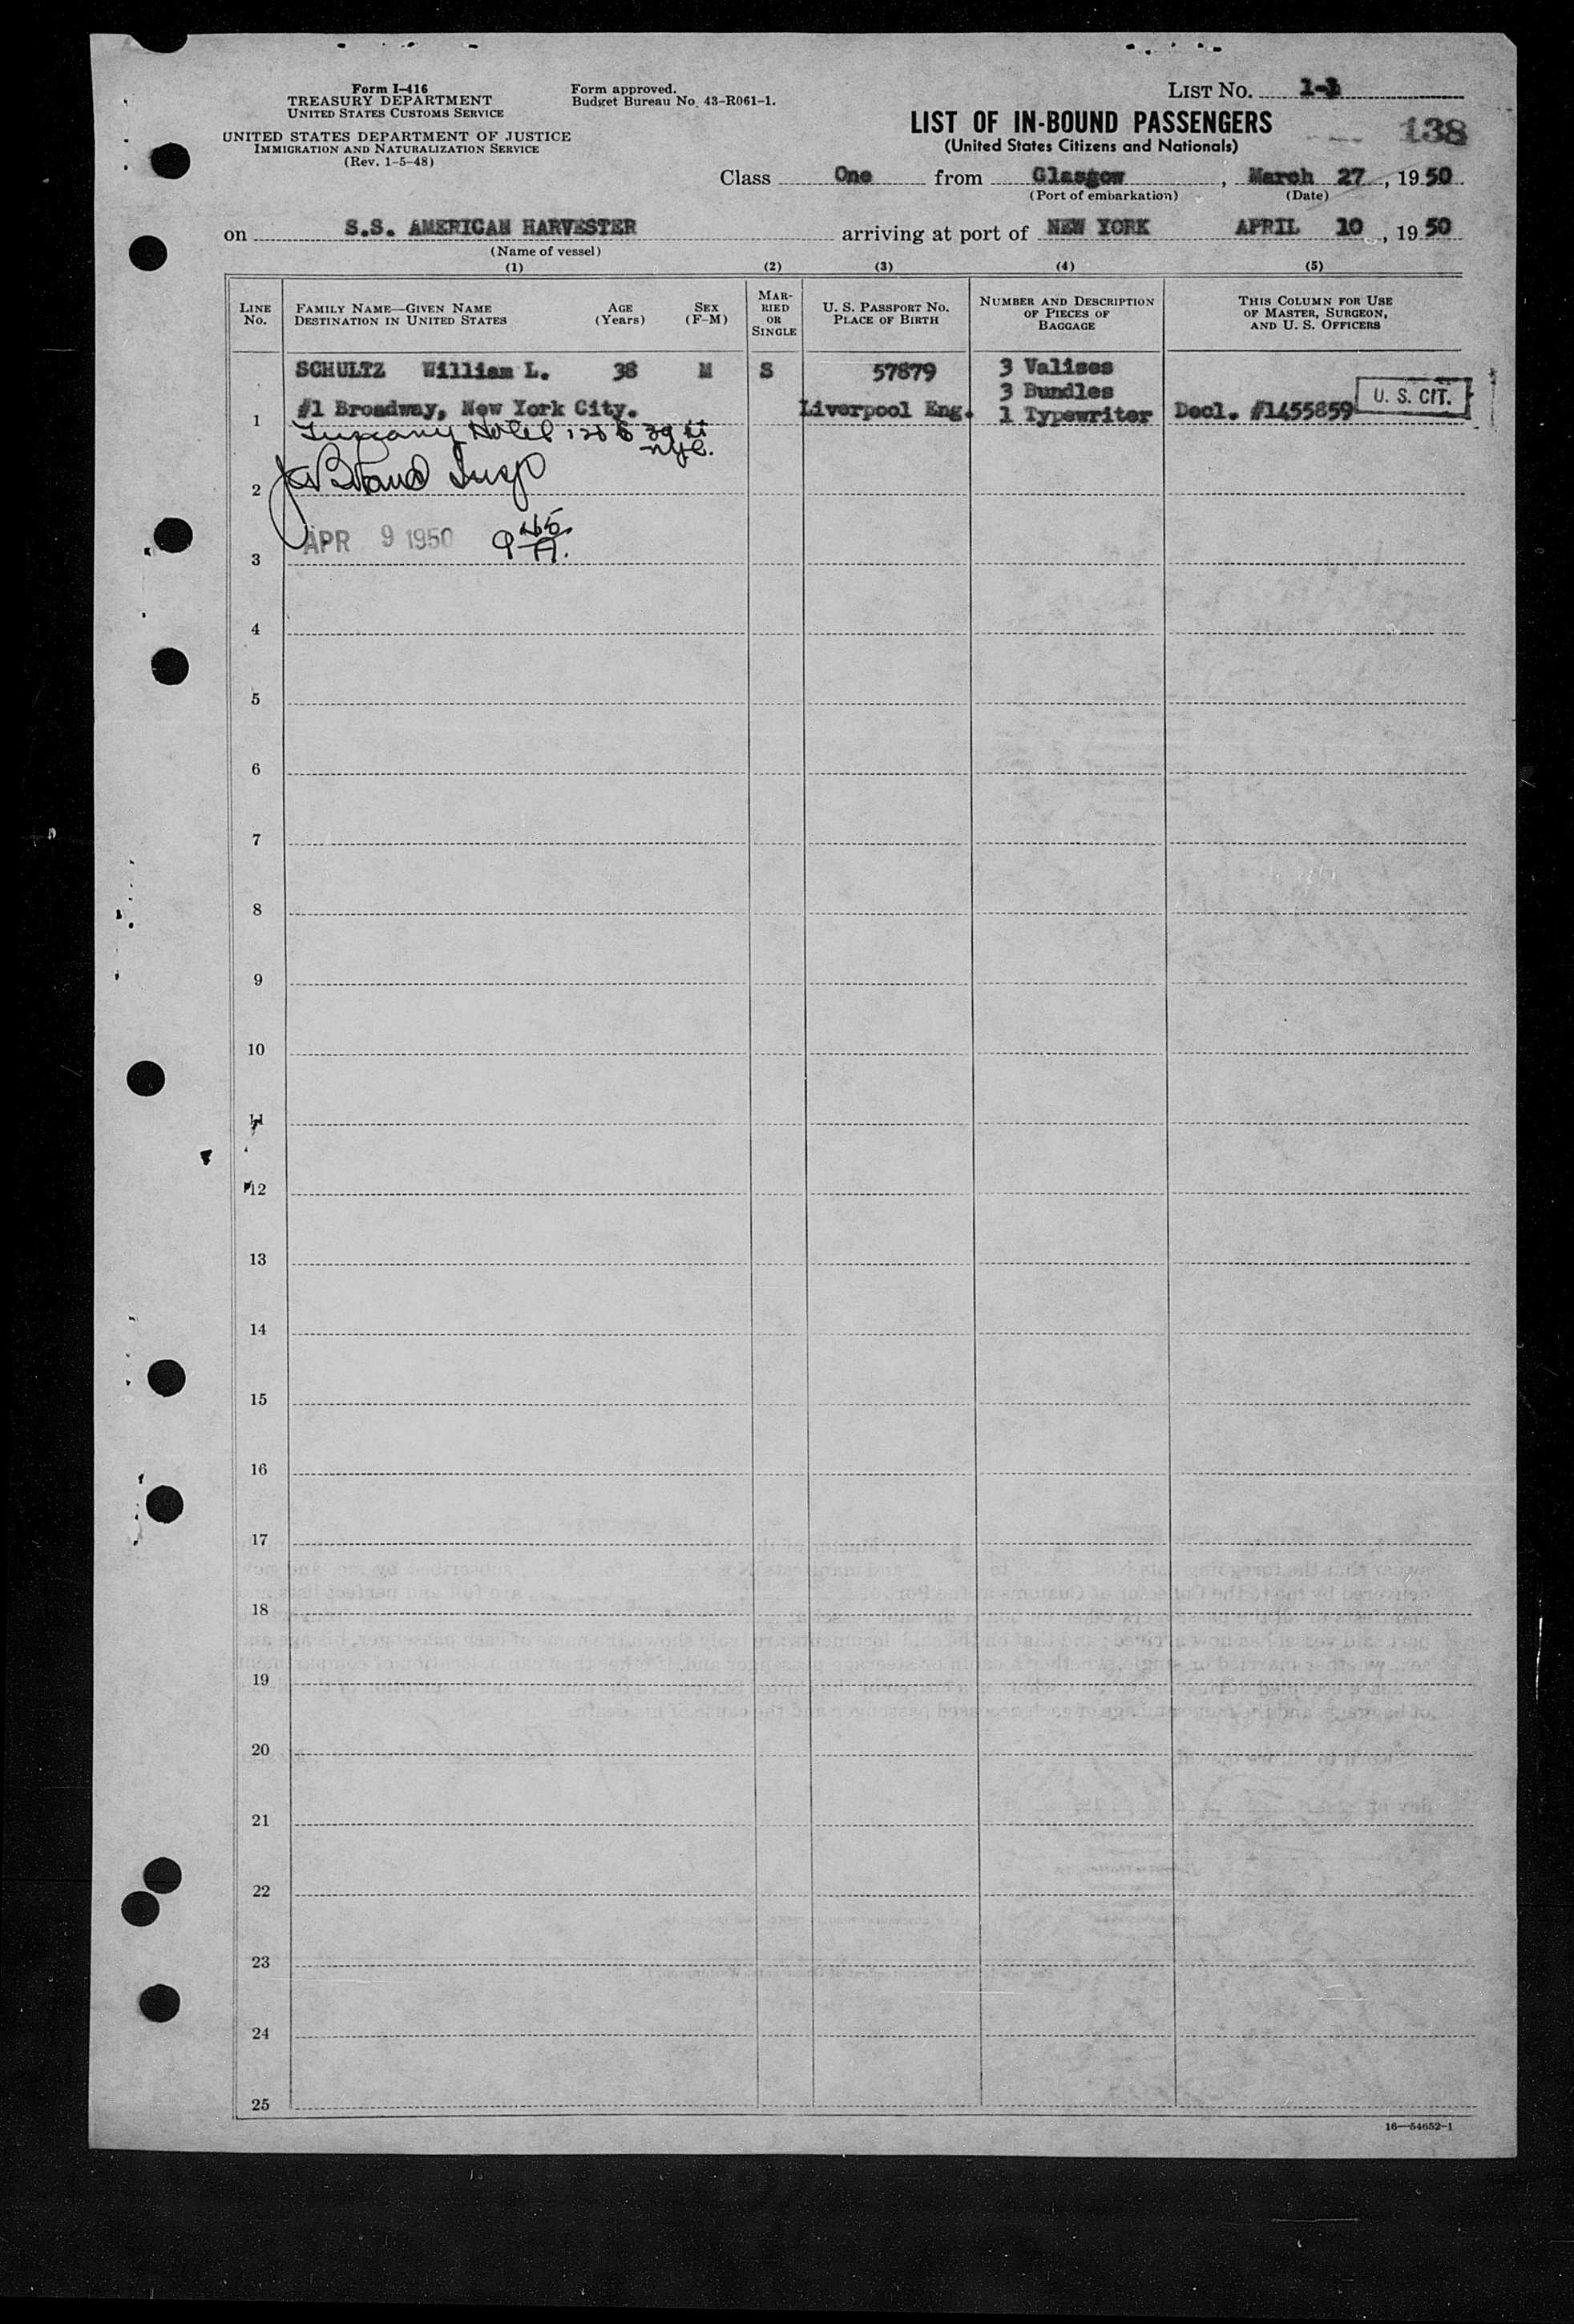 Form I-416
TREASURY DEPARTMENT
UNITED STATES CUSTOMS SERVICE
UNITED STATES DEPARTMENT OF JUSTICE
IMMIGRATION AND NATURALIZATION SERVICE
(Rev. 1-5-48)
Form approved.
Budget Bureau No. 43-R061-1.
LIST NO. 1-1
LIST OF IN-BOUND PASSENGERS
(United States Citizens and Nationals)
138
Class One from Glasgow, March 27, 1950
(Port of embarkation) (Date)
on S.S. AMERICAN HARVESTER arriving at port of NEW YORK APRIL 10, 1950
(Name of vessel)
(1) (2) (3) (4) (5)
LINE No.
FAMILY NAME—GIVEN NAME
DESTINATION IN UNITED STATES
AGE (Years)
SEX (F-M)
MAR-RIED OR SINGLE
U. S. PASSPORT NO.
PLACE OF BIRTH
NUMBER AND DESCRIPTION OF PIECES OF BAGGAGE
THIS COLUMN FOR USE OF MASTER, SURGEON, AND U. S. OFFICERS
SCHULTZ William L. 38 M S 57879 3 Valises
3 Bundles
1 #1 Broadway, New York City. Liverpool Eng. 1 Typewriter Decl. #1455859 U. S. CIT.
Tuscany Hotel 120 E 39 St
NYC.
2
APR 9 1950 9 45 A.
3
4
5
6
7
8
9
10
11
12
13
14
15
16
17
18
19
20
21
22
23
24
25
16—54652-1